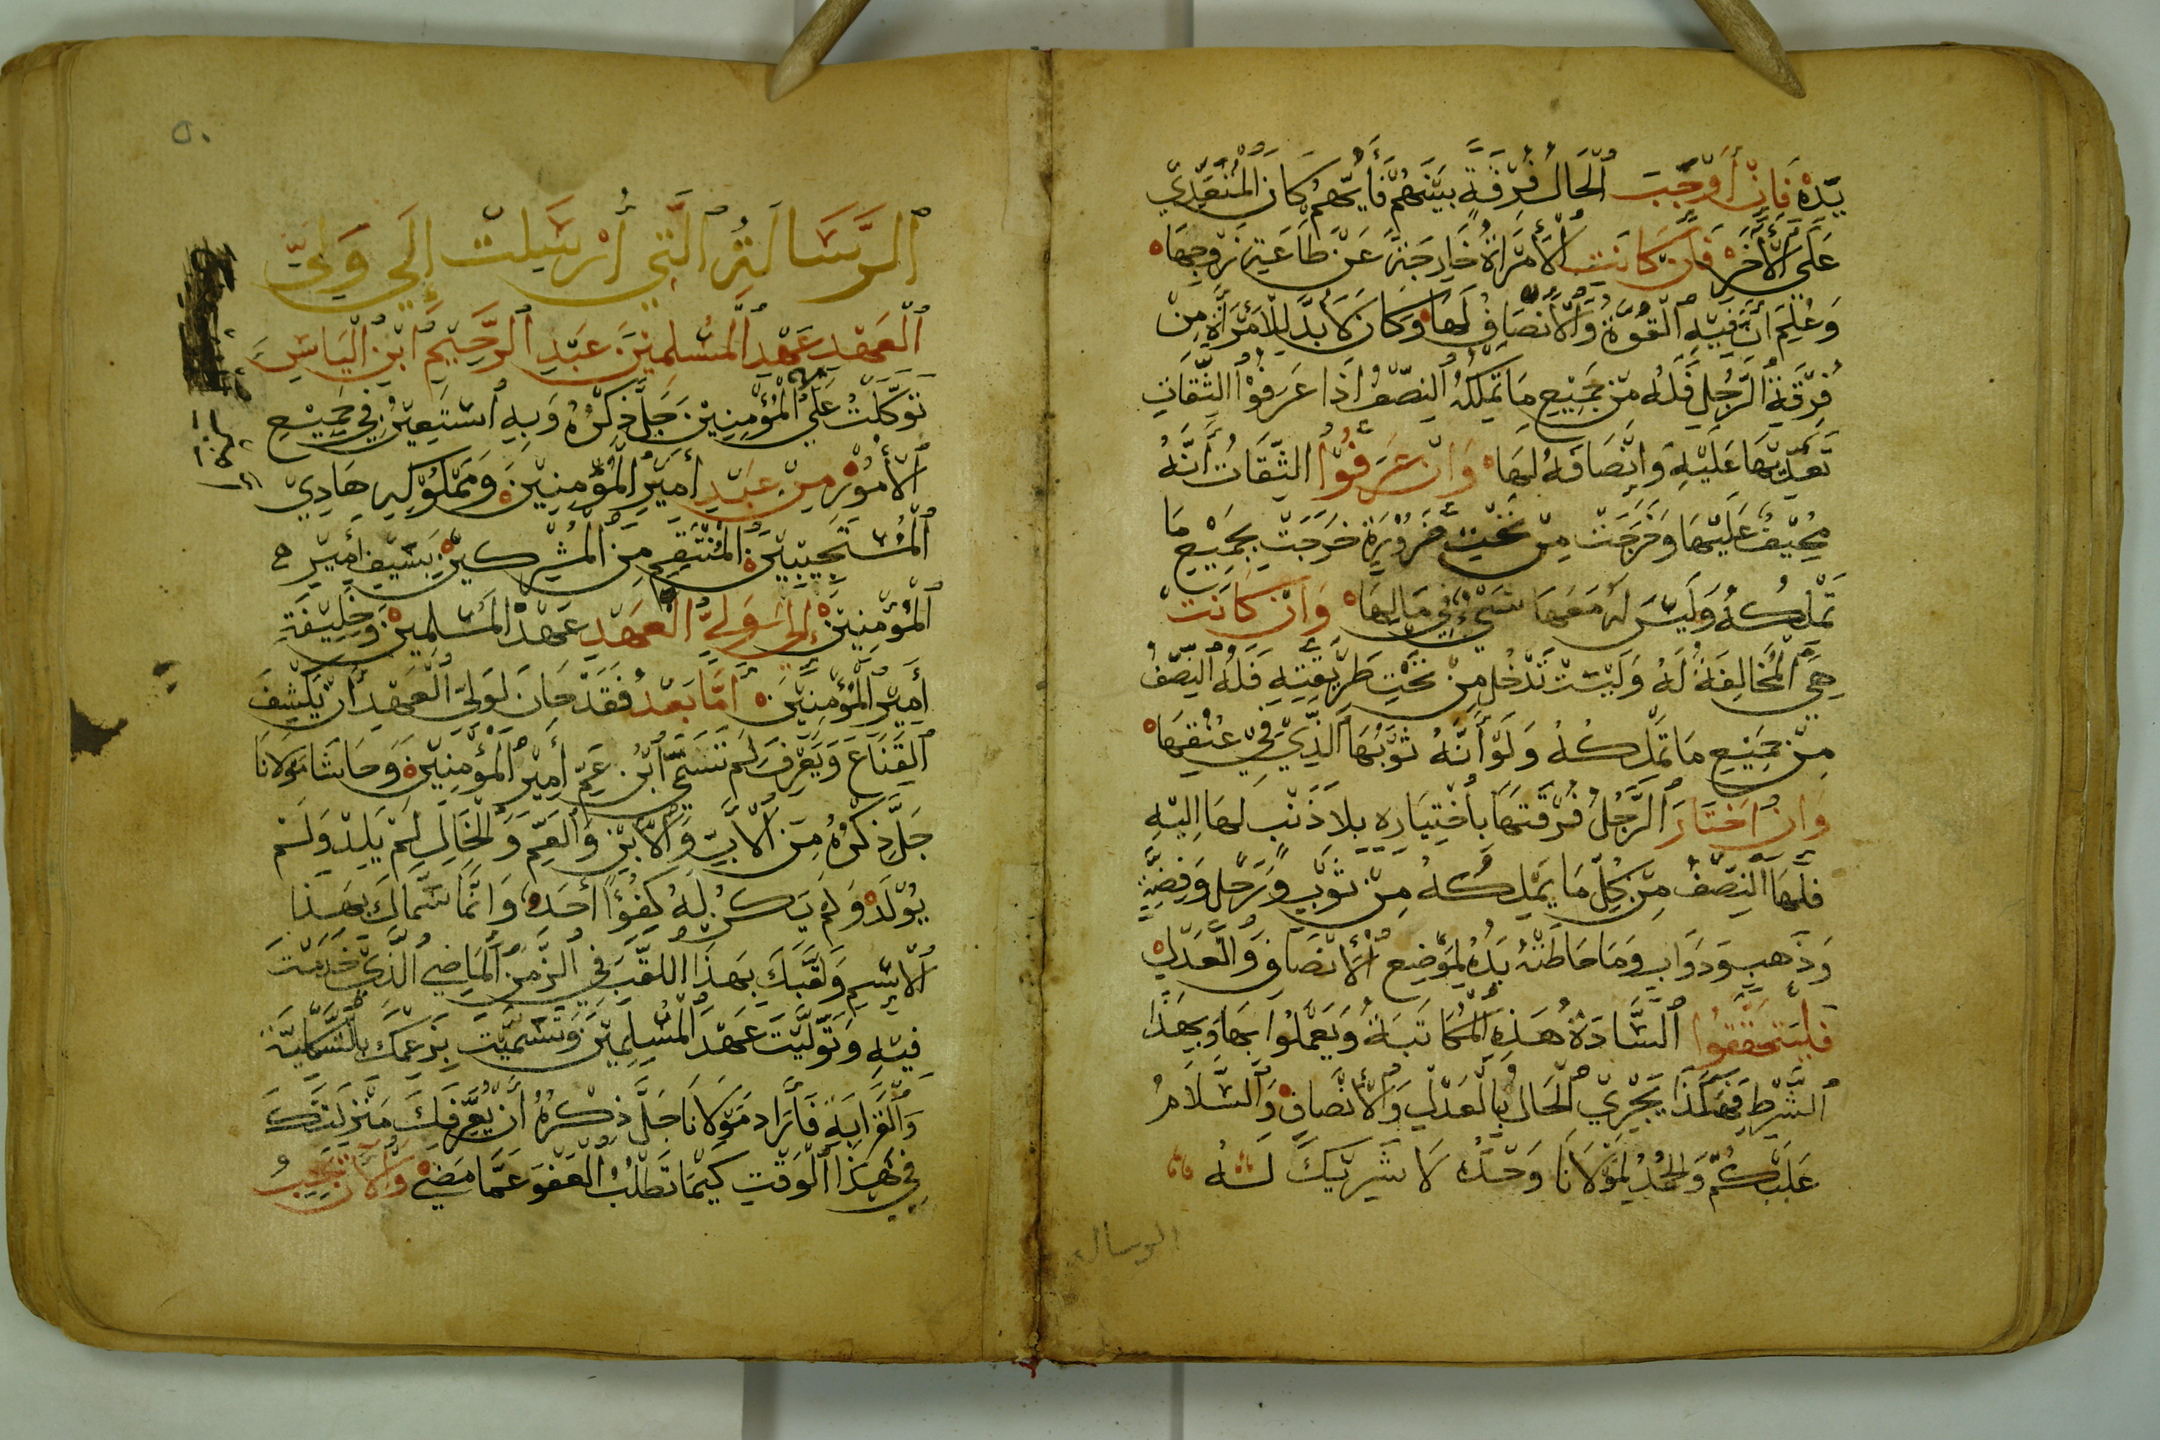 يَدِهْ فَإِنْ أَوْجَبَتِ ٱلْحَالُ فُرْقَةً بَيْنَهُمْ فَأَيُّهُمْ كَانَ ٱلْمُتَعَدِّيْ
عَلَى ٱلْأَخَرِ فَإِنْ كَانَتِ ٱلْأَمْرَاةُ خَارِجَةً عَنْ طَاعَةِ زَوْجِهَا
وَعُلِمَ أَنَّ فِيْهِ ٱلْقُوَّةَ وَٱلْأَنْصَافْ لَهَا وَكَانَ لَا بُدَّ لِلْأَمْرَأَةِ مِنْ
فُرْقَةِ ٱلرَّجُلِ فَلَهُ مِنْ جَمِيْعِ مَا تَمْلِكُهُ ٱلنِّصْفُ اذَا عَرَفُوْا ٱلثِّقَاتِ
تَعَدِّيْهَا عَلَيْهِ وَانْصَافَهُ لَهَا وَانْ عَرَفُوْا الثِّقَاتُ أَنَّهُ
مُحِيْفٌ عَلَيْهَا وَخَرَجَتْ مِنْ تَحْتِ ضَرُوْرَةٍ خَرَجَتْ بِجَمِيْعِ مَا
تَمْلُكُهُ وَلَيْسَ لَهُ مَعَهَا شَيْءٌ فِيْ مَالِهَا وَانْ كَانَتْ
هِيَ ٱلْمُخَالِفَةُ لَهُ وَلَيْسَتْ تَدْخُلُ مِنْ تَحْتِ طَرِيْقَتِهِ فَلَهُ ٱلنِّصْفُ
مِنْ جَمِيْعِ مَا تَمْلِكُهُ وَلَوْ أَنَّهُ ثَوْبُهَا ٱلَّذِيْ فِيْ عُنْقِهَا
وَانْ اخْتَارَ ٱلرَّجُلُ فُرْقَتَهَا بِأُخْتِيَارِهِ بِلَا ذَنْبٍ لَهَا الِيْهِ
فَلَهَا ٱلنِّصْفُ مِنْ كُلِّ مَا يَمْلِكُهُ مِنْ ثَوْبٍ وَرَحْلٍ وَفِضَّةٍ
وَذَهَبٍ وَدَوَابٍ وَمَا حَاطَتْهُ يَدُهُ لِمَوْضِعِ ٱلْأَنْصَافِ وَٱلْعَدْلِ
فَلْيَتَحَقَّقُوْا ٱلسَّادَةُ هَذِهِ ٱلْمُكَاتَبَةُ وَيَعْمَلُوْا بِهَا وَبِهَذَا
ٱلشَّرْطِ فَهَكَذَا يَجْرِيْ ٱلْحَالُ بِٱلْعَدْلِ وَٱلْأَنْصَافِ وَٱلسَّلَامُ
عَلَيْكُمْ وَٱلْحَمْدُ لِمَوْلَانَا وَحْدَهُ لَا شَرِيْكَ لَهُ
الرساله
٥٠
ٱلرِّسَالَةُ ٱلَّتِي أُرْسِلَتْ إِلَي وَلِيِّ
ٱلْعَهْدِ عَهْدِ ٱلْمُسْلِمِيْنَ عَبْدِ ٱلرَّحِيْمِ ٱبْنِ ٱلْيَاسِ
تَوَكَّلْتُ عَلَى أَمِيْرِ ٱلْمُؤْمِنِيْنَ جَلَّ ذِكْرُهُ وَبِهِ أَسْتَعِيْنُ فِي جَمِيْعِ
ٱلْأُمُوْرْ مِنْ عَبْدِ أَمِيْرِ ٱلْمُؤْمِنِيْنَ وَمَمْلُوْكِهِ هَادِيْ
ٱلْمُسْتَجِيْبِيْنَ ٱلْمُنْتَقِمِ مِنَ ٱلْمُشْرِكِيْنَ بِسَيْفِ أَمِيْرِ
ٱلْمُؤْمِنِيْنَ إِلَى وَلِيِّ ٱلْعَهْدِ عَهْدِ ٱلْمُسْلِمِيْنَ وَخَلِيْفَةِ
أَمِيْرِ ٱلْمُؤْمِنِيْنَ أَمَّا بَعْدُ فَقَدْ حَانَ لِوَلِيِّ ٱلْعَهْدِ أَنْ يَكْشِفَ
ٱلْقِنَاعَ وَيَعْرِفَ لِمَ تَسَمَّى ٱبْنُ عَمِّ أَمِيْرِ ٱلْمُؤْمِنِيْنَ وَحَاشَا مَوْلَانَا
جَلَّ ذِكْرُهُ مِنَ ٱلْأَبِ وَٱلْأَبْنِ وَٱلْعَمِّ وَٱلْخَالِ لَمْ يَلِدْ وَلَمْ
يُوْلَدْ وَلَمْ يَكُنْ لَهُ كُفُؤًا أَحَدٌ وَانَّمَا سَمَّاكَ بِهَذَا
ٱلْاسْمِ وَلَقَّبَكَ بِهَذَا ٱللَّقَبَ فِي ٱلزَّمَنِ ٱلْمَاضِي ٱلَّذِيْ خَدَمْتَ
فِيْهِ وَتَوَلَّيْتَ عَهْدَ ٱلْمُسْلِمِيْنَ وَتَسَمَّيْتَ بِزَعْمِكَ بِٱلتَّسْمِيَةِ
وَٱلْقَرَابَةِ فَأَرَادَ مَوْلَانَا جَلَّ ذِكْرُهُ أَنْ يُعَرِّفَكَ مَنْزِلَتَكَ
فِي هَذَا ٱلْوَقْتِ كَيْمَا تَطْلُبُ ٱلْعَفْوَ عَمَّا مَضَى وَٱلْأَنْ يَجِبُ